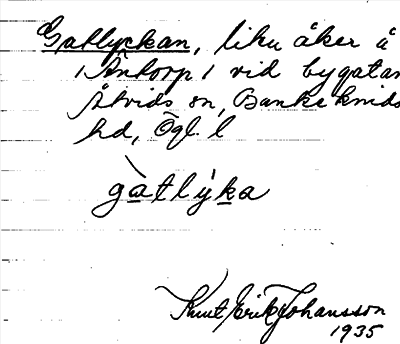 Gatlyckan, liten åker å
1 Åntorp 1 vid bygatan
Åtvids sn, Bankekinds
hd, Ögl. l
gatlyka
Knut Erik Johansson
1935